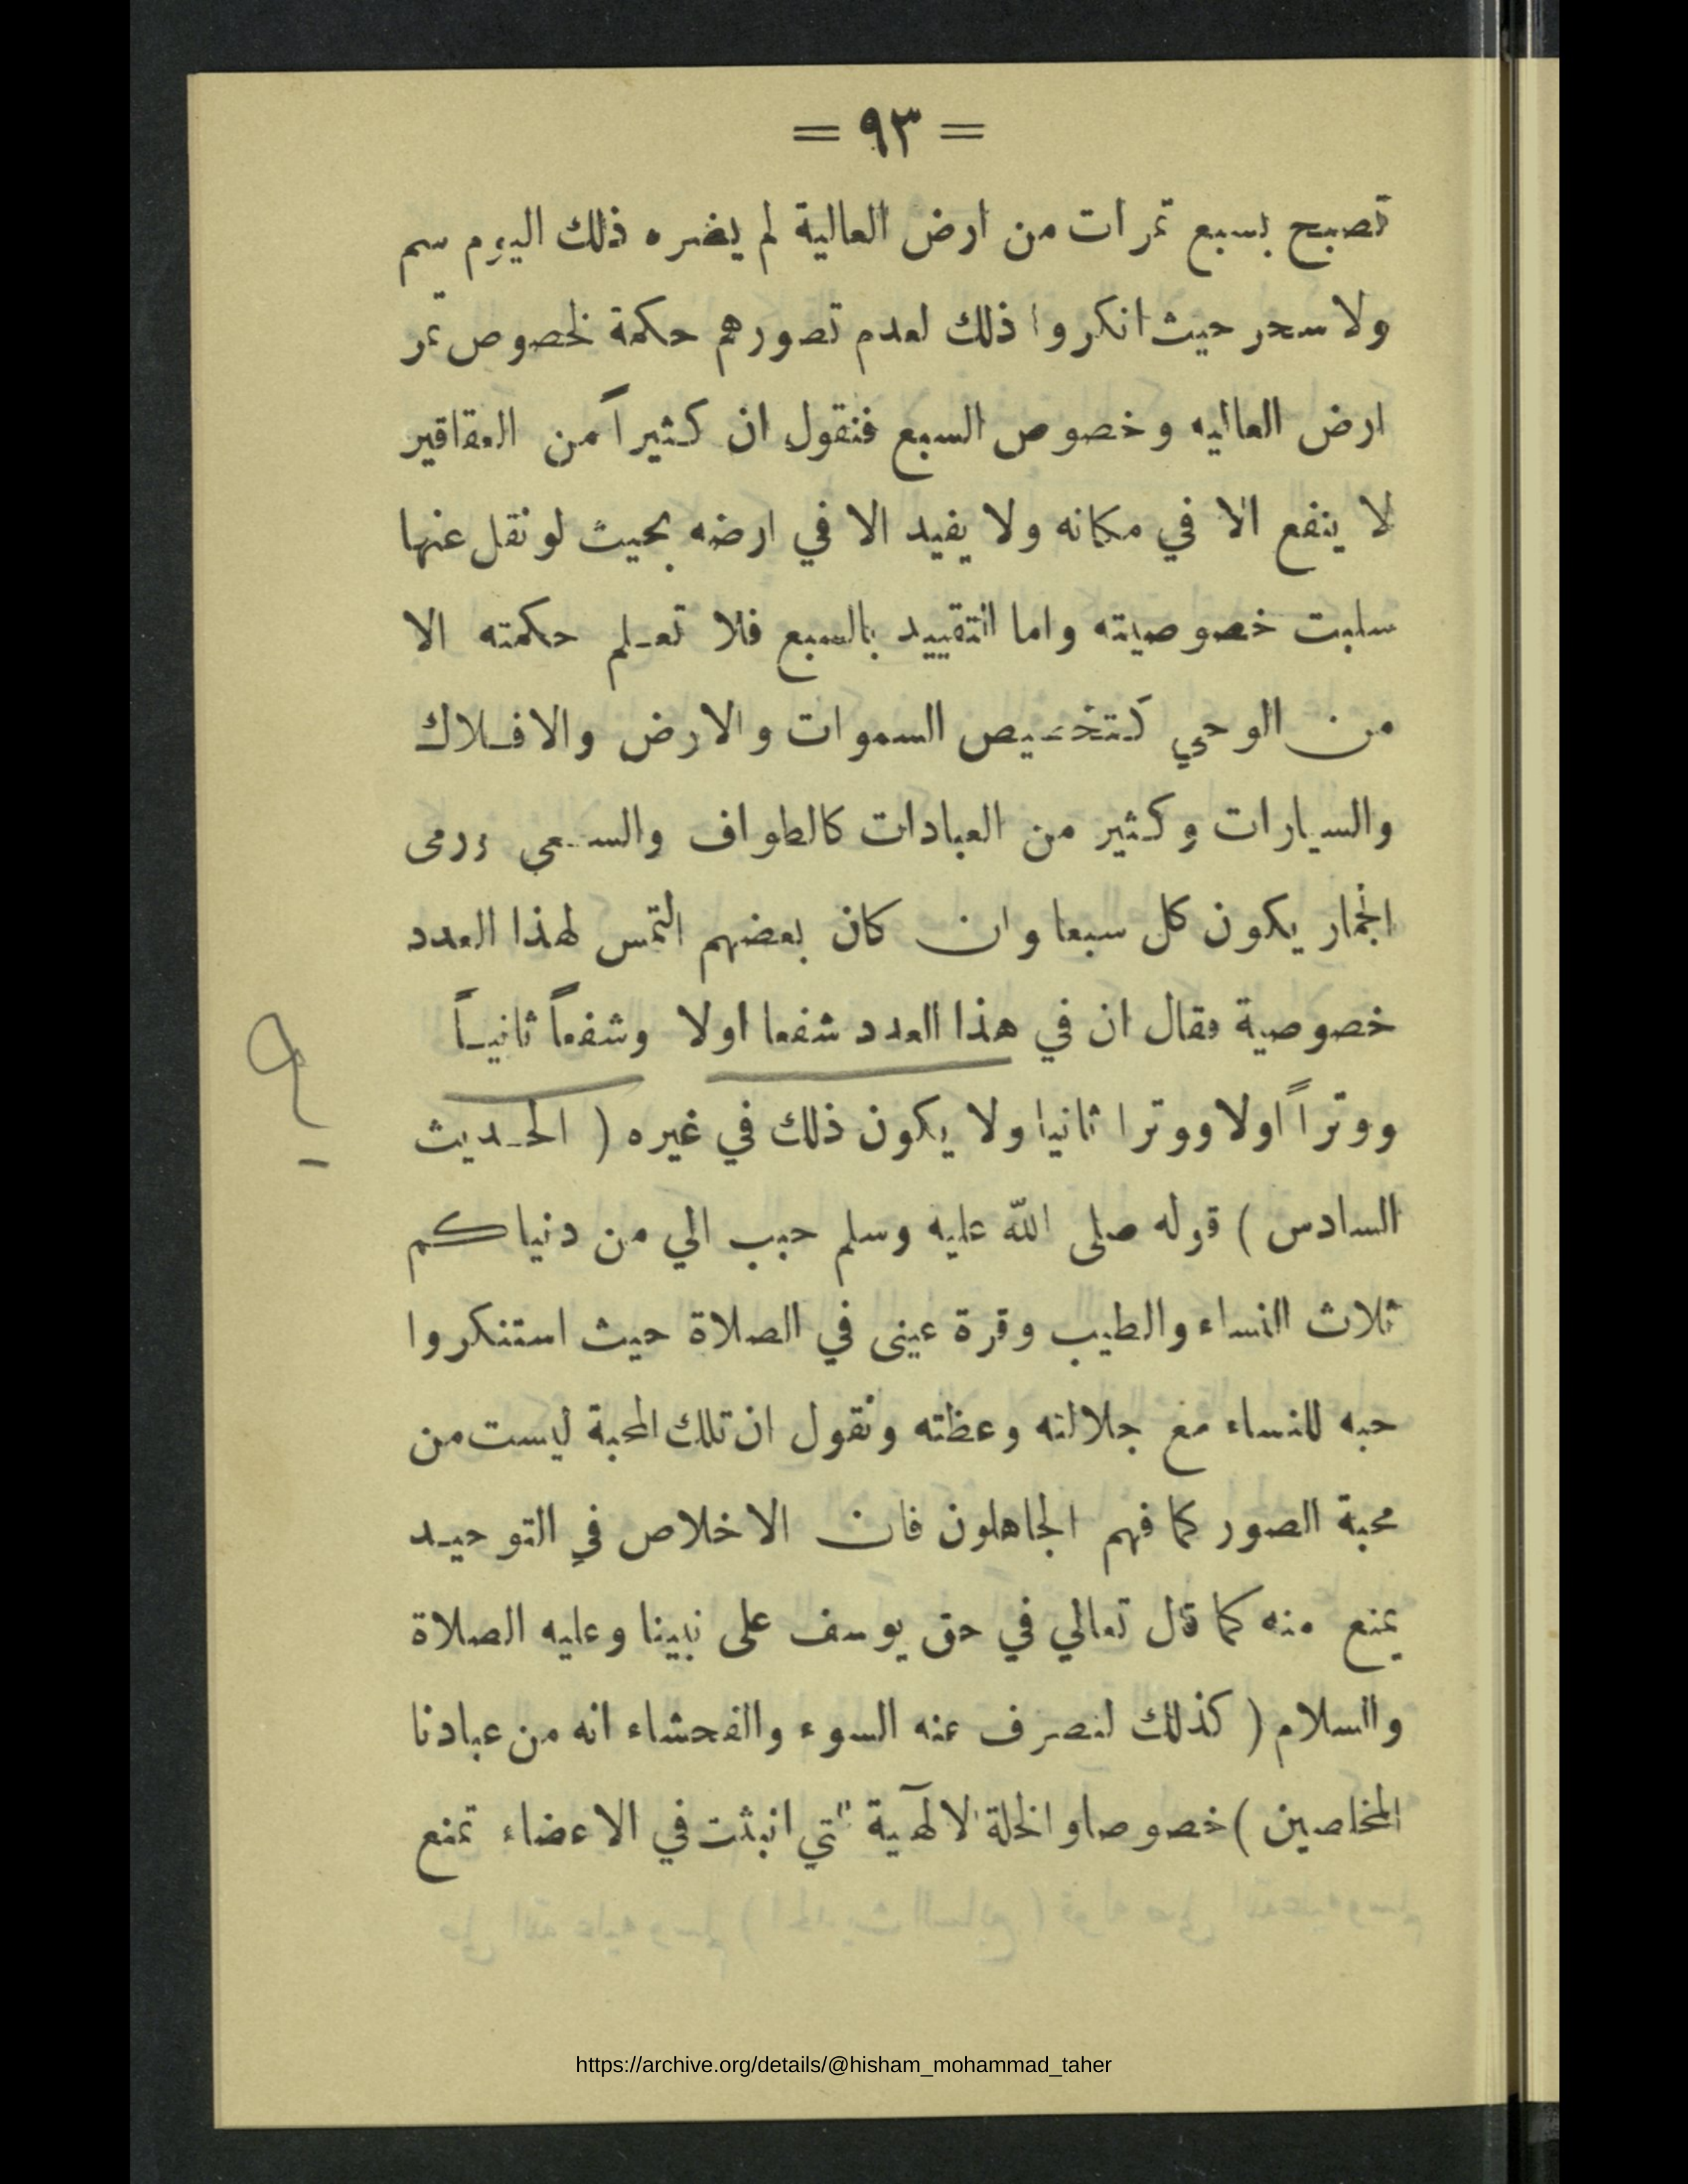 = ٩٣ =
تصبح بسبع تمرات من ارض العالية لم يضره ذلك اليوم سم
ولا سحر حيث انكروا ذلك لعدم تصورهم حكمة لخصوص تمر
ارض العاليه وخصوص السبع فنقول ان كثيراً من العقاقير
لا ينفع الا في مكانه ولا يفيد الا في ارضه بحيث لو نقل عنها
سلبت خصوصيته واما التقييد بالسبع فلا تعلم حكمته الا
من الوحي كتخصيص السموات والارض والافلاك
والسيارات وكثير من العبادات كالطواف والسعي ورمى
الجمار يكون كل سبعا وان كان بعضهم التمس لهذا العدد
خصوصية فقال ان في هذا العدد شفعا اولا وشفعاً ثانياً
ووتراً اولا ووترا ثانيا ولا يكون ذلك في غيره ( الحديث
السادس ) قوله صلى الله عليه وسلم حبب الي من دنياكم
ثلاث النساء والطيب وقرة عينى في الصلاة حيث استنكروا
حبه للنساء مع جلالته وعظته ونقول ان تلك المحبة ليست من
محبة الصور كما فهم الجاهلون فان الاخلاص في التوحيد
يمنع منه كما قال تعالي في حق يوسف على نبينا وعليه الصلاة
والسلام ( كذلك لنصرف عنه السوء والفحشاء انه من عبادنا
المخلصين ) خصوصا والخلة الالهية التي انبثت في الاعضاء تمنع
https://archive.org/details/@hisham_mohammad_taher